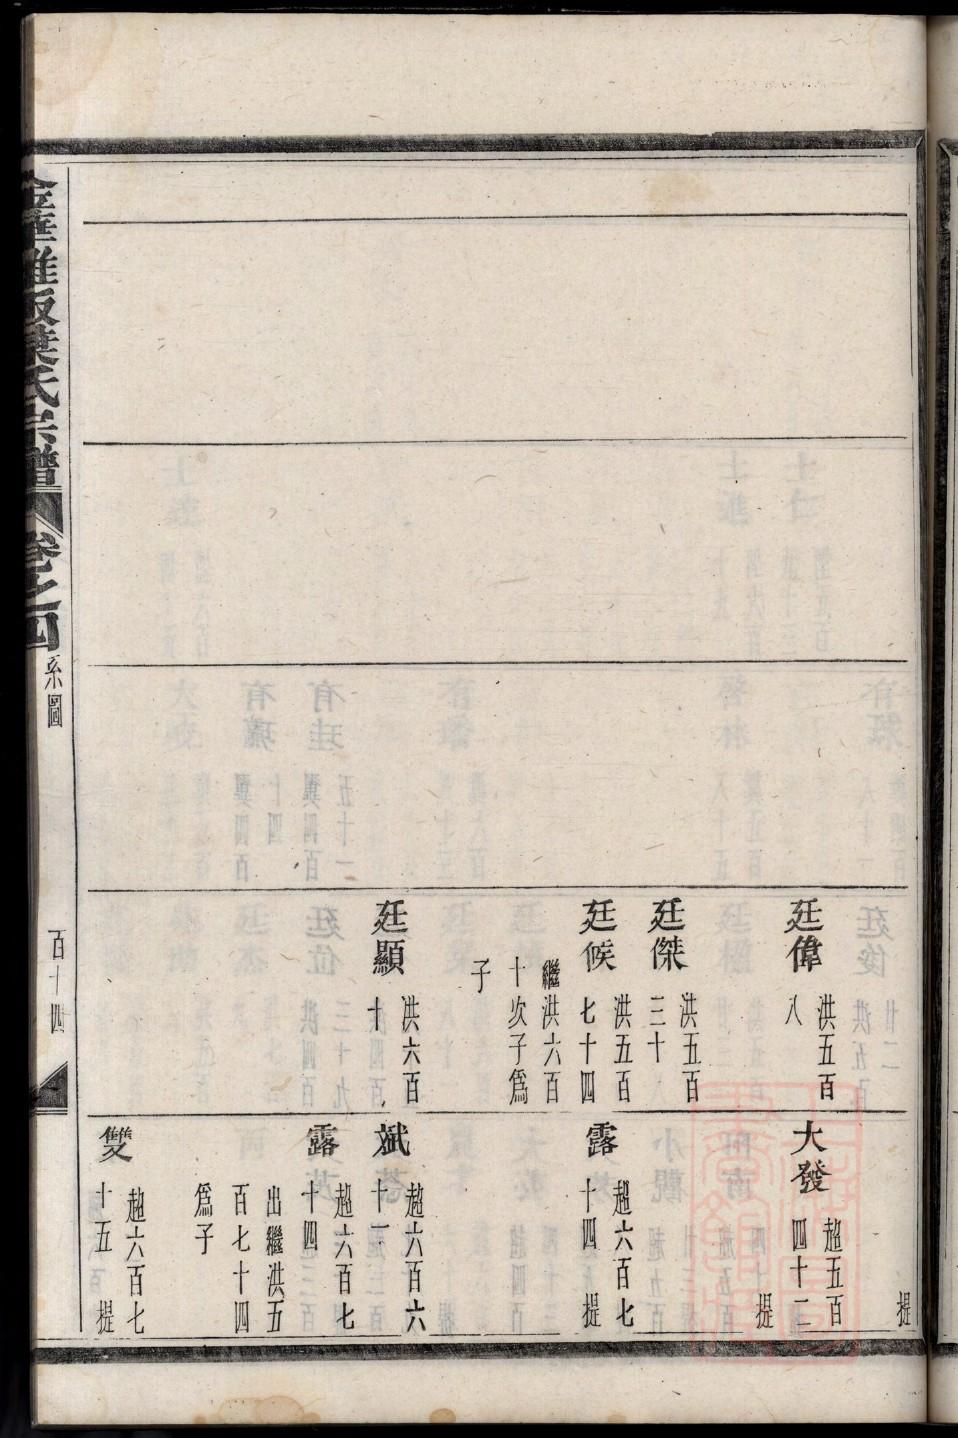 提
廷偉
洪五百
八
廷傑
洪五百
三十
廷候
洪五百
七十四
繼洪六百
十次子爲
子
廷顯
洪六百
十
大發
趙五百
四十二
提
露
趙六百七
十四 提
斌
趙六百六
十一
露
趙六百七
十四
出繼洪五
百七十四
爲子
雙
趙六百七
十五 提
葉氏宗譜
卷之四
系圖
百十四